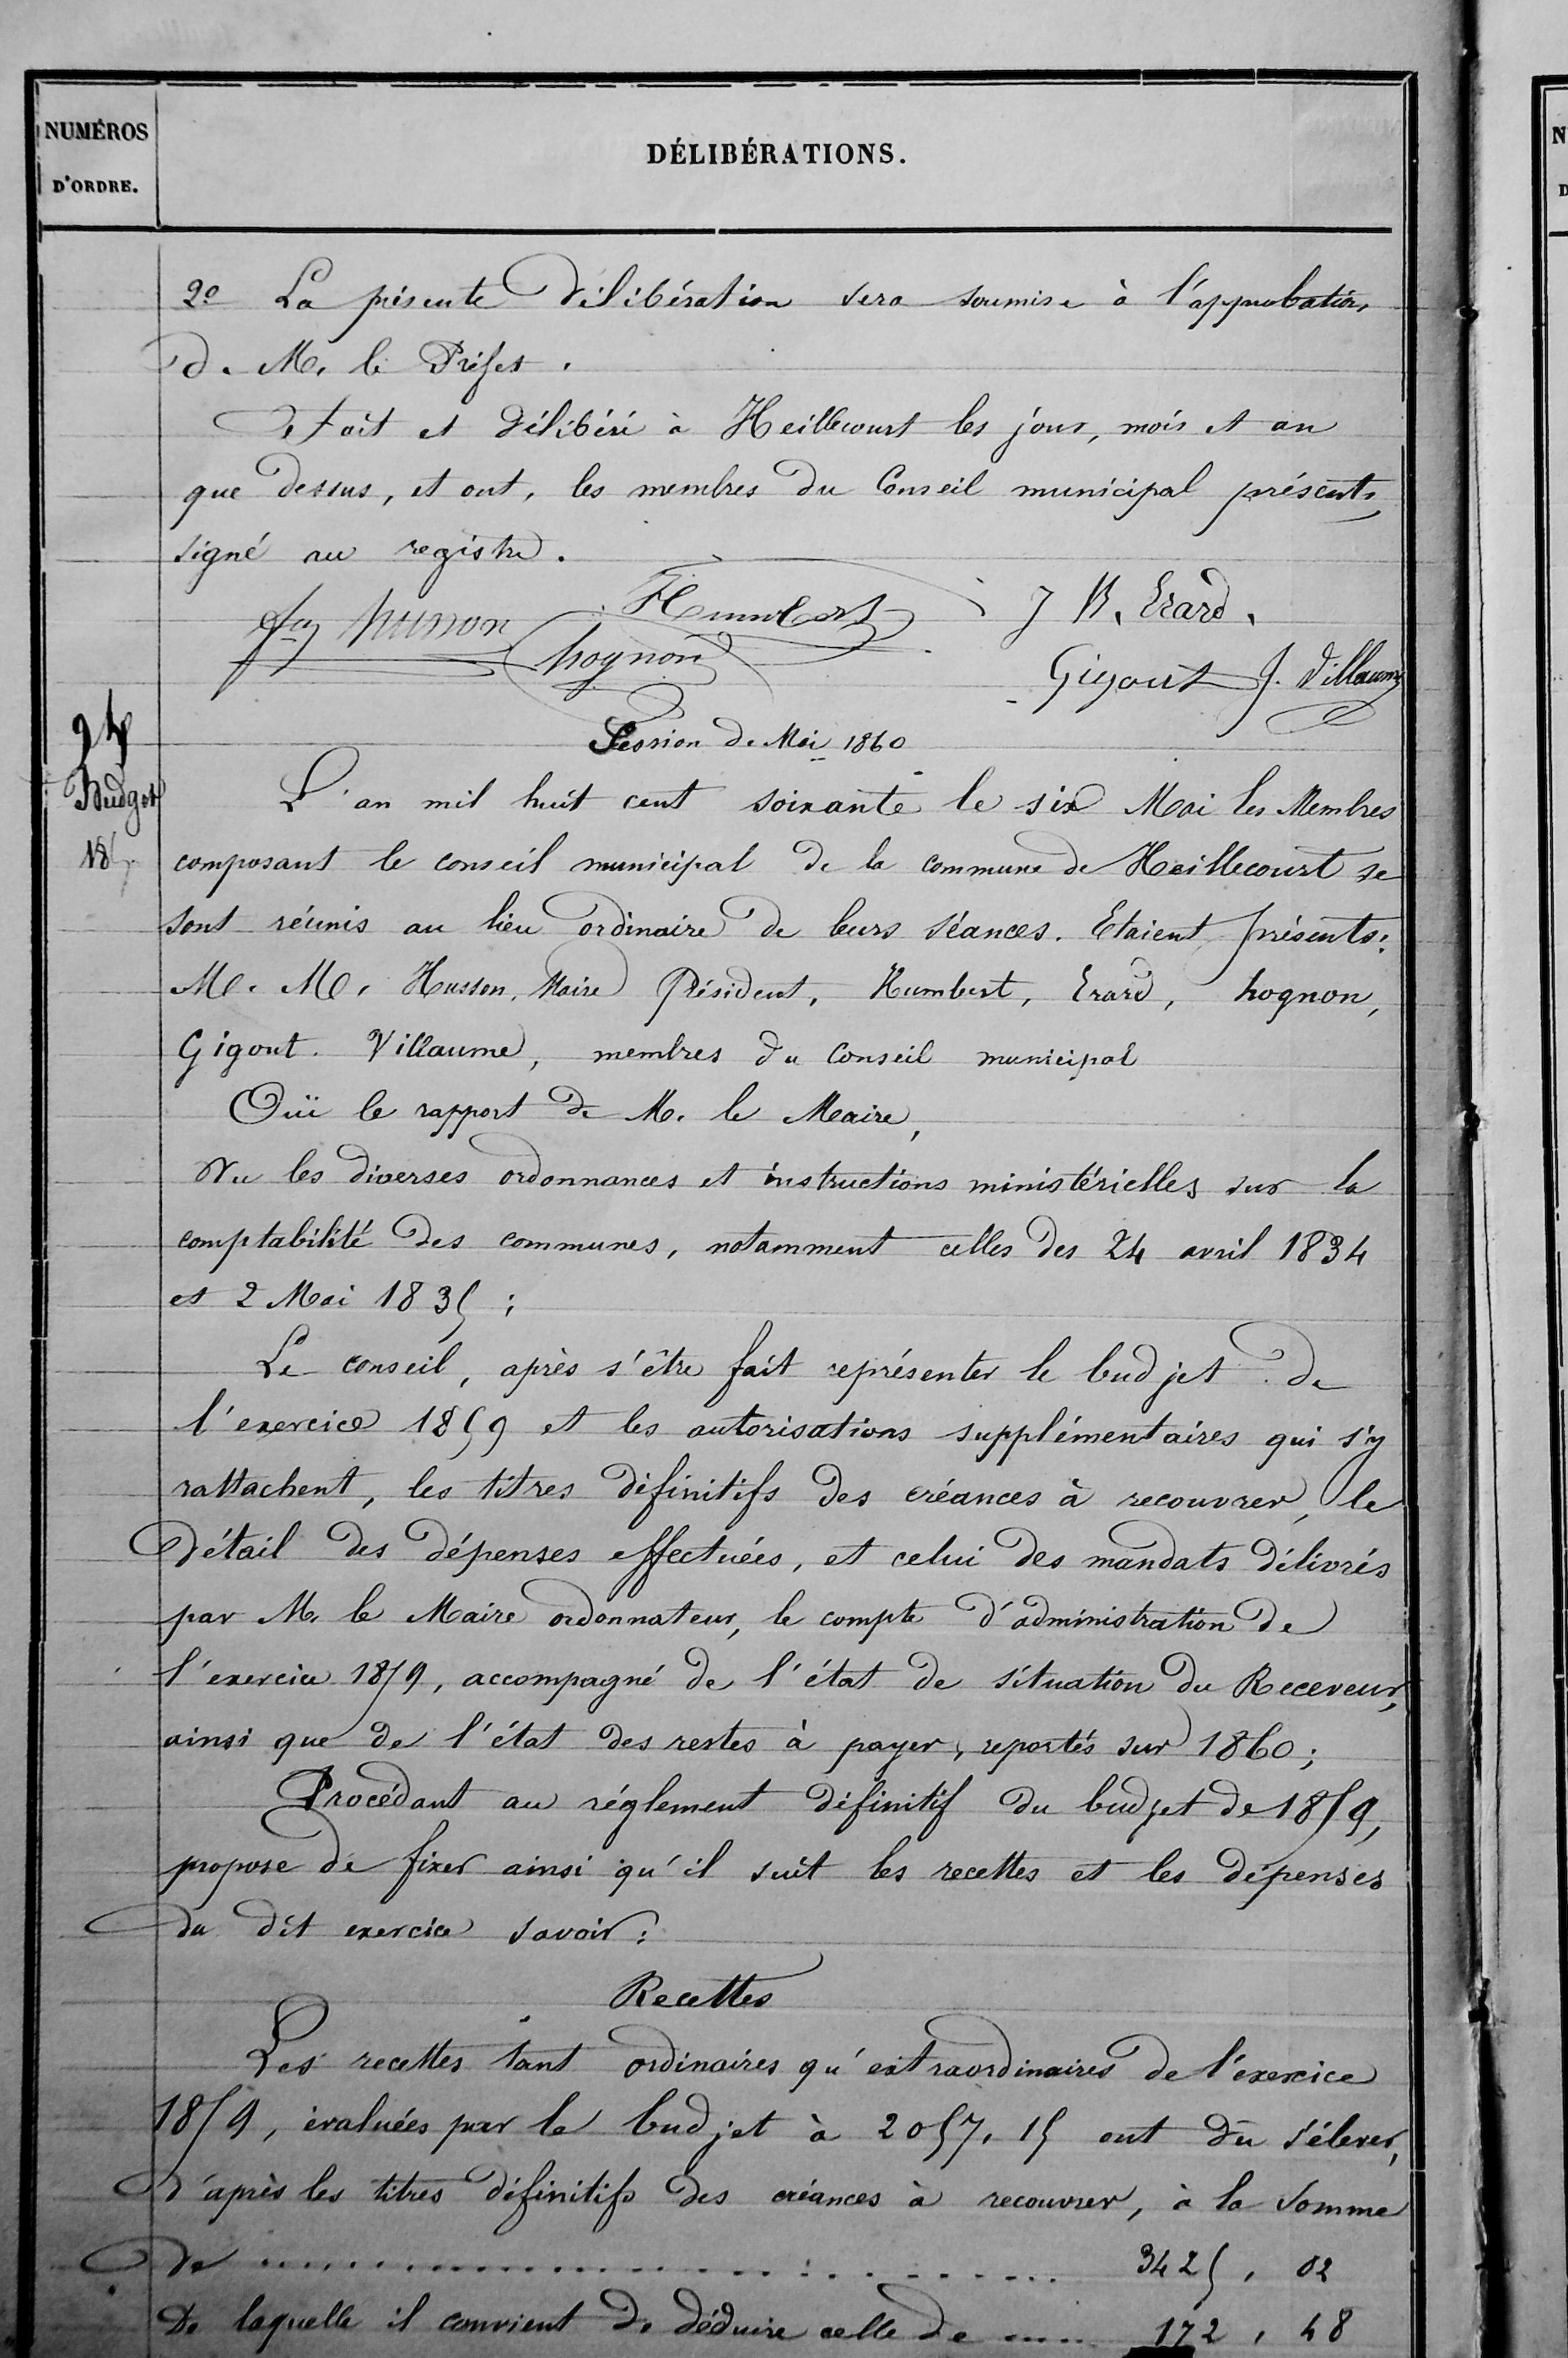 NUMÉROS
D'ORDRE.
DÉLIBÉRATIONS.
2º La présente délibération sera soumise à l'approbation
de M. le Préfet.
Fait et délibéré à Heillecourt les jour, mois et an
que dessus, et ont, les membres du Conseil municipal présents,
signé au registre.
husson Humbert J B. Erard.
hognon Gigout J. Villaume
24
Budget
Session de Mai 1860
L'an mil huit cent soixante le six Mai les Membres
composant le conseil municipal de la commune de Heillecourt se
sont réunis au lieu ordinaire de leurs séances. Etaient présents:
M. M. Husson, Maire Président, Humbert, Erard, hognon,
Gigout. Villaume, membres du Conseil municipal
Ouï le rapport de M. le Maire,
Vu les diverses ordonnances et instructions ministérielles sur la
comptabilité des communes, notamment celles des 24 avril 1834
et 2 Mai 1835;
Le conseil, après s'être fait représenter le budjet de
l'exercice 1859 et les autorisations supplémentaires qui s'y
rattachent, les titres définitifs des créances à recouvrer, le
détail des dépenses effectuées, et celui des mandats délivrés
par M. le Maire ordonnateur, le compte d'administration de
l'exercice 1859, accompagné de l'état de situation du Receveur,
ainsi que de l'état des restes à payer, reportés sur 1860;
Procédant au réglement définitif du budjet de 1859,
propose de fixer ainsi qu'il suit les recettes et les dépenses
du dit exercice savoir:
Recettes
Les recettes tant ordinaires qu'extraordinaires de l'exercice
1859, évaluées par le budjet à 2057,15 ont dû s'élever,
d'après les titres définitifs des créances à recouvrer, à la somme
de .......................... 3425, 02
De laquelle il convient de déduire celle de ..... 172, 48